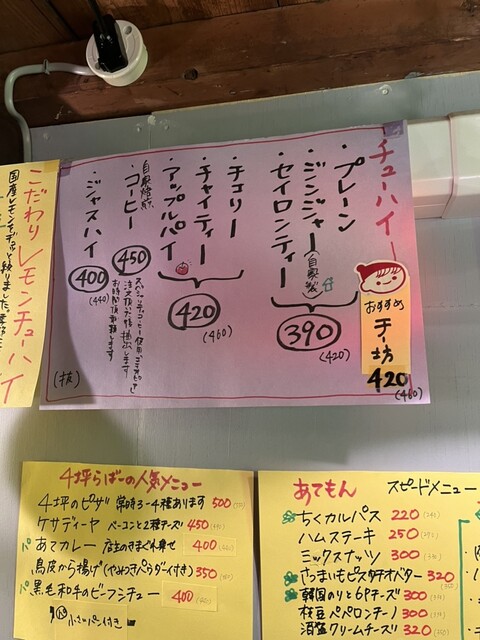 こだわりレモンチューハイ
国産レモンをギュッと絞りました。
チューハイ
・プレーン
・ジンジャー(自家製)
・セイロンティー
390
(420)
・チコリー
・チャイティー
・アップルパイ
420
(460)
自家焙煎
・コーヒー
450
お時間頂戴致します
・ジャスハイ
400
(440)
(抜)
おすすめ
チィ坊
420
(460)
4坪らばーの人気メニュー
4坪のピザ 常時3〜4種あります 500
ケサディーヤ ベーコンと2種チーズ 450
パ あてカレー 店主のきまぐれ乗せ 400
鳥皮から揚げ(やみつきパウダー付き) 350
パ 黒毛和牛のビーフシチュー 400
パ 小さいパン付き
あてもん スピードメニュー
ちくカルパス 220
ハムステーキ 250
ミックスナッツ 300
さつまいもピスタチオバター 320
韓国のりと6Pチーズ 300
枝豆ペペロンチーノ 300
酒盗クリームチーズ 320